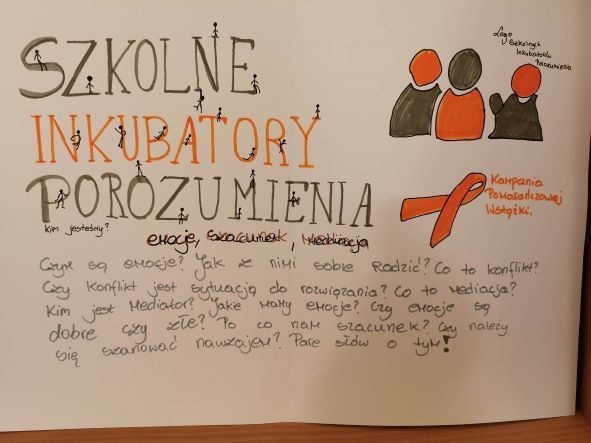 SZKOLNE
INKUBATORY
POROZUMIENIA
Logo
Szkolnych
Inkubatorów
Porozumienia
Kampania
Pomarańczowej
Wstążki.
Kim jesteśmy?
emocje, szacunek, mediacja
Czym są emocje? Jak z nimi sobie radzić? Co to konflikt?
Czy konflikt jest sytuacją do rozwiązania? Co to mediacja?
Kim jest Mediator? Jakie mamy emocje? Czy emocje są
dobre czy złe? Po co nam szacunek? Czy należy
się szanować nawzajem? Parę słów o tym!